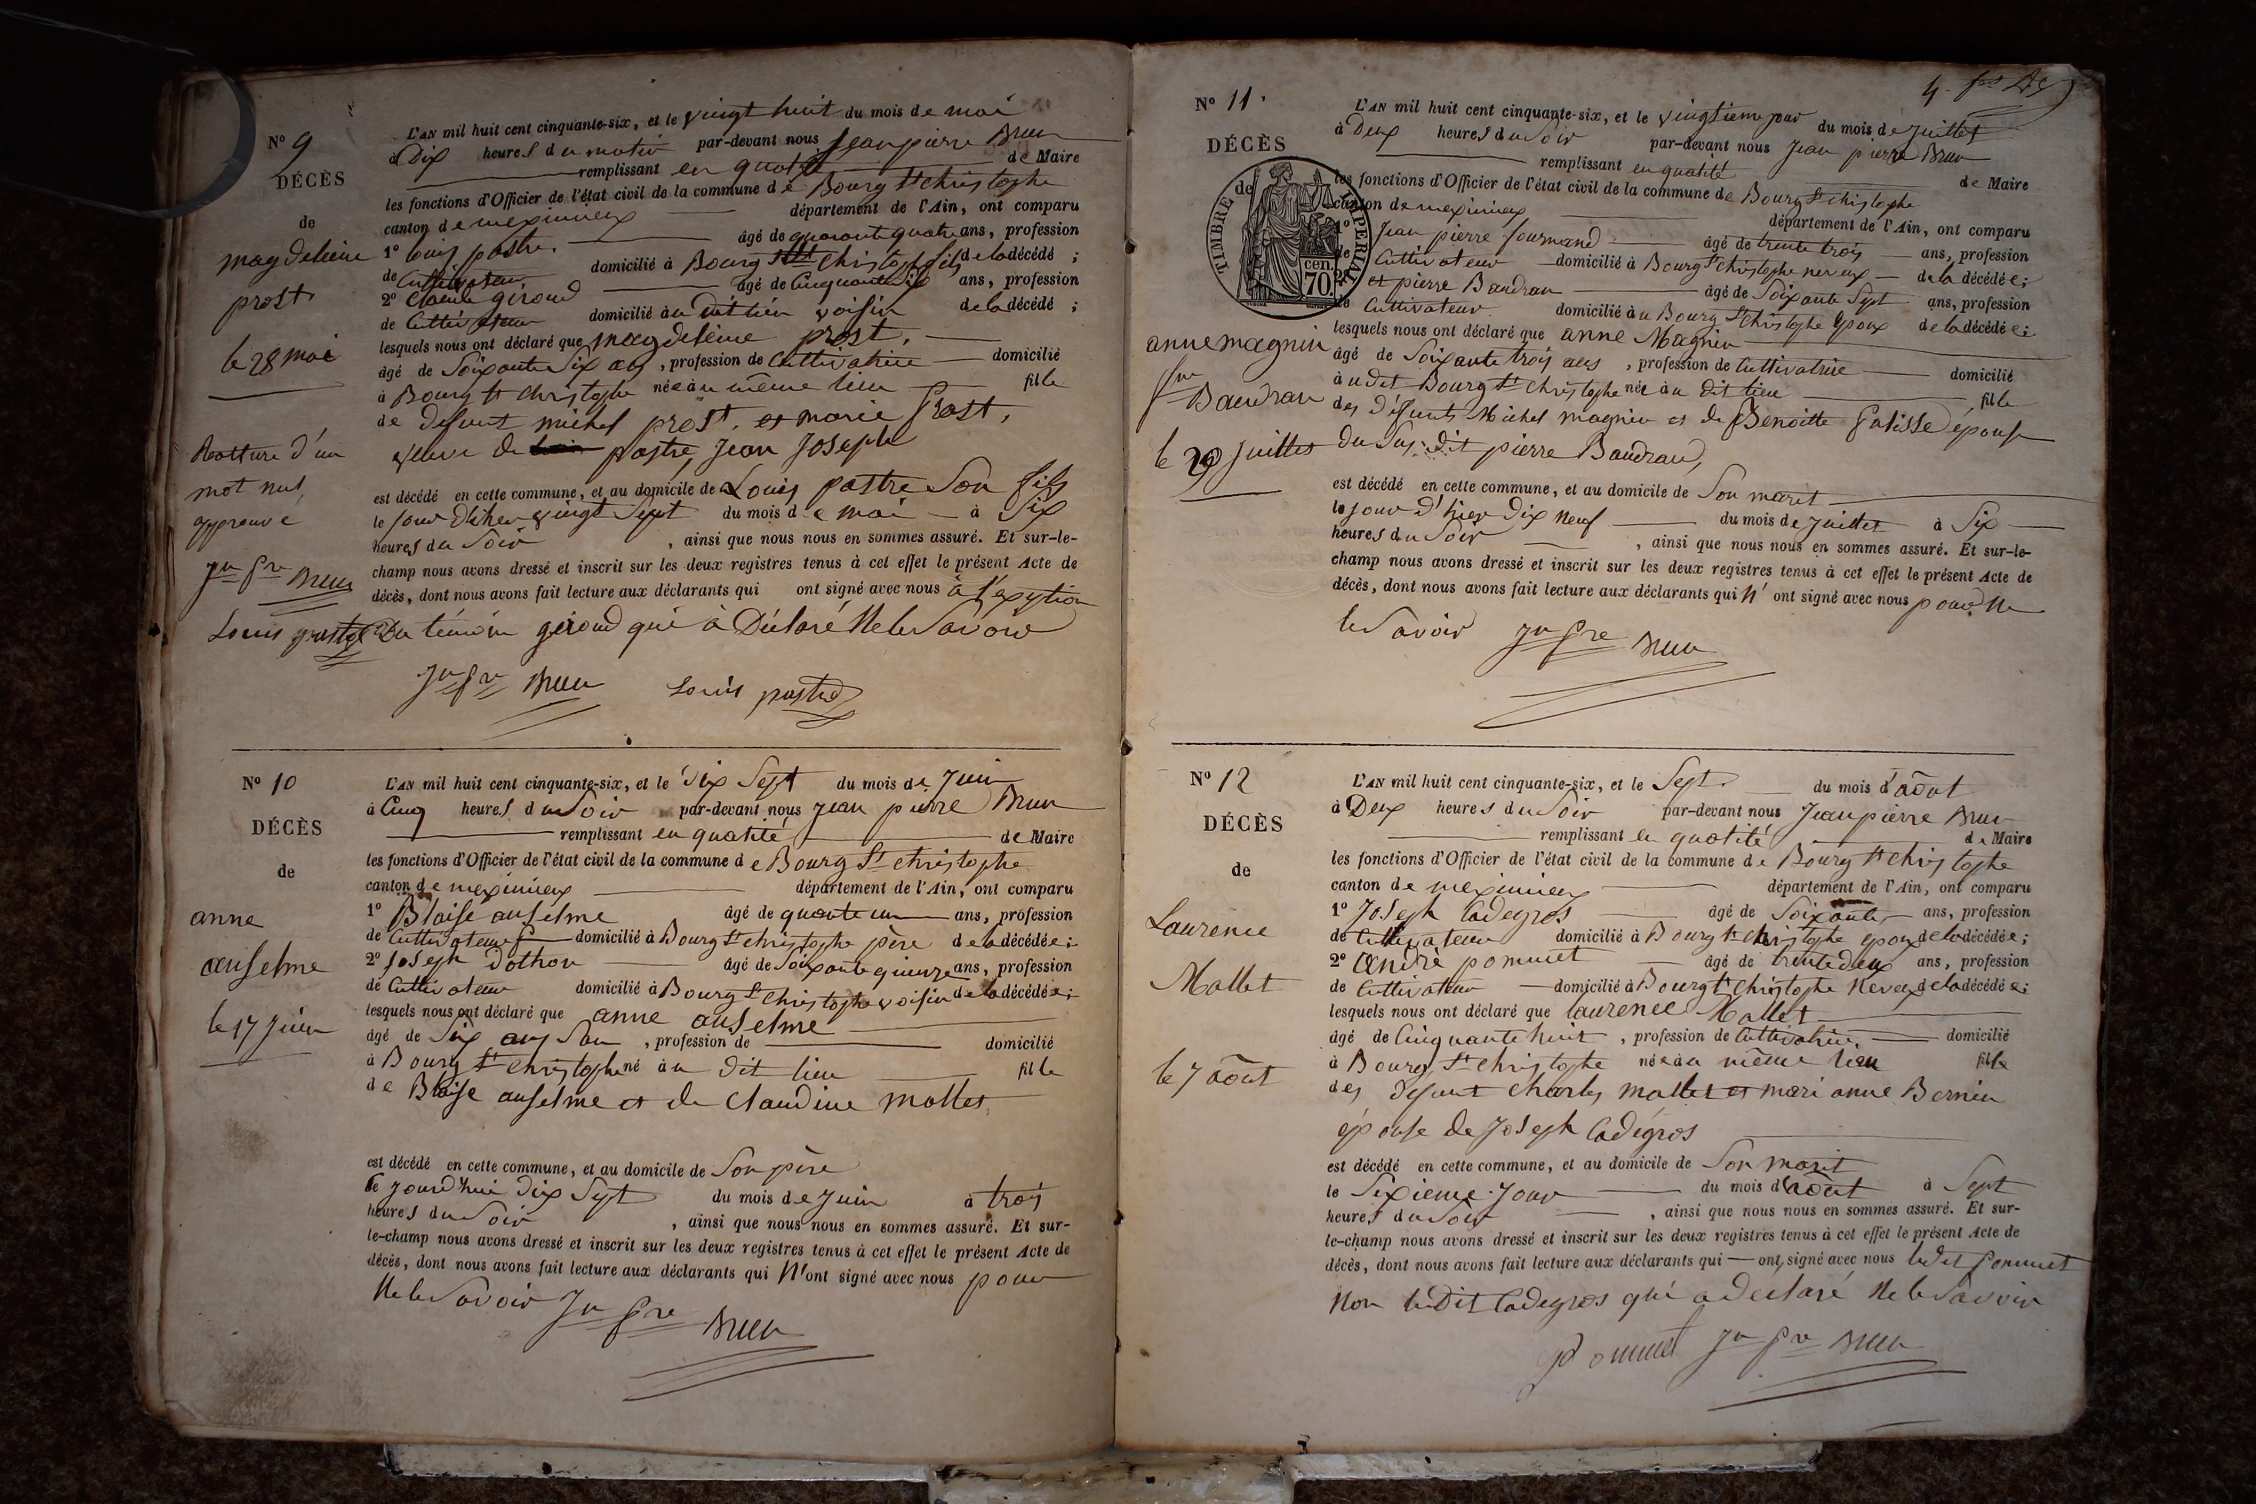 N° 9
DÉCÈS
de
magdeleine
prost
le 28 mai
Ratture d'un
mot nul
approuvé
Jn Pre Brun
Louis pastre
L'AN mil huit cent cinquante-six, et le vingt huit du mois de mai
à Dix heures du matin par-devant nous Jean pierre Brun
remplissant en qualité de Maire
les fonctions d'Officier de l'état civil de la commune de Bourg St christophe
canton de meximieux département de l'Ain, ont comparu
1° Louis pastre. âgé de quarante quatre ans, profession
de Cultivateur domicilié à Bourg St Christophe fils de la décédé ;
2° Claude giroud âgé de Cinquante ans, profession
de Cultivateur domicilié au dit lieu voisin de la décédé ;
lesquels nous ont déclaré que magdeleine prost,
âgé de Soixante Six ans, profession de Cultivatrice domicilié
à Bourg St Christophe née au même lieu fille
de Défunt michel prost, et marie Prost,
veuve de pastre, Jean Joseph
est décédé en cette commune, et au domicile de Louis pastre Son fils
le jour D'hier vingt Sept du mois de mai à Six
heures du Soir, ainsi que nous nous en sommes assuré. Et sur-le-
champ nous avons dressé et inscrit sur les deux registres tenus à cet effet le présent Acte de
décès, dont nous avons fait lecture aux déclarants qui ont signé avec nous à l'exeption
Du témoin giroud qui à Déclaré Ne le Savoir
Jn Pre Brun Louis pastre
N° 10
DÉCÈS
de
anne
anselme
le 17 Juin
L'AN mil huit cent cinquante-six, et le Dix Sept du mois de Juin
à Cinq heures du Soir par-devant nous Jean pierre Brun
remplissant en qualité de Maire
les fonctions d'Officier de l'état civil de la commune de Bourg St christophe
canton de meximieux département de l'Ain, ont comparu
1° Blaise anselme âgé de quarante un ans, profession
de Cultivateur domicilié à Bourg St christophe père de la décédée ;
2° Joseph Dothon âgé de Soixante quinze ans, profession
de Cultivateur domicilié à Bourg St christophe voisin de la décédée ;
lesquels nous ont déclaré que anne anselme
âgé de Six ans, profession de domicilié
à Bourg St christophe né au dit lieu fille
de Blaise anselme et de Claudine mollet
est décédé en cette commune, et au domicile de Son père
le jourd'hui Dix Sept du mois de Juin à trois
heures du Soir, ainsi que nous nous en sommes assuré. Et sur-
le-champ nous avons dressé et inscrit sur les deux registres tenus à cet effet le présent Acte de
décès, dont nous avons fait lecture aux déclarants qui N'ont signé avec nous pour
Ne le Savoir Jn Pre Brun
N° 11
DÉCÈS
de
TIMBRE IMPÉRIAL
70 cen.
anne magnin
fme
Baudran
le 20 Juillet
L'AN mil huit cent cinquante-six, et le vingtieme jour du mois de Juillet
à Deux heures du Soir par-devant nous Jean pierre Brun
remplissant en qualité de Maire
les fonctions d'Officier de l'état civil de la commune de Bourg St christophe
canton de meximieux département de l'Ain, ont comparu
1° Jean pierre Journand âgé de trente trois ans, profession
de Cultivateur domicilié à Bourg St christophe neveux de la décédée ;
2° et pierre Baudran âgé de Soixante Sept ans, profession
de Cultivateur domicilié au Bourg St christophe Epoux de la décédée ;
lesquels nous ont déclaré que anne Magnin
âgé de Soixante trois ans, profession de Cultivatrice domicilié
à u dit Bourg St christophe née au dit lieu fille
des Défunts Michel magnin et de Benoitte Falisse épouse
du Sus-dit pierre Baudran,
est décédé en cette commune, et au domicile de Son marit
le jour D'hier Dix Neuf du mois de Juillet à Six
heures du Soir, ainsi que nous nous en sommes assuré. Et sur-le-
champ nous avons dressé et inscrit sur les deux registres tenus à cet effet le présent Acte de
décès, dont nous avons fait lecture aux déclarants qui N'ont signé avec nous pour Ne
le Savoir Jn Pre Brun
N° 12
DÉCÈS
de
Laurence
Mallet
le 7 août
L'AN mil huit cent cinquante-six, et le Sept du mois d'août
à Deux heures du Soir par-devant nous Jean pierre Brun
remplissant en qualité de Maire
les fonctions d'Officier de l'état civil de la commune de Bourg St christophe
canton de meximieux département de l'Ain, ont comparu
1° Joseph Cadegros âgé de Soixante ans, profession
de Cultivateur domicilié à Bourg St christophe epoux de la décédée ;
2° André pommet âgé de trente deux ans, profession
de Cultivateur domicilié à Bourg St christophe Neveux de la décédée ;
lesquels nous ont déclaré que laurence Mallet
âgé de Cinquante huit, profession de Cultivatrice domicilié
à Bourg St christophe née au même lieu fille
des Défunt Charles mallet et mari anne Bernin
épouse de Joseph Cadégros
est décédé en cette commune, et au domicile de Son marit
le Sixieme Jour du mois d'août à Sept
heures du Soir, ainsi que nous nous en sommes assuré. Et sur-
le-champ nous avons dressé et inscrit sur les deux registres tenus à cet effet le présent Acte de
décès, dont nous avons fait lecture aux déclarants qui ont signé avec nous ledit Pommet
Non ledit Cadegros qui a declaré Ne le Savoir
Pommet Jn Pre Brun